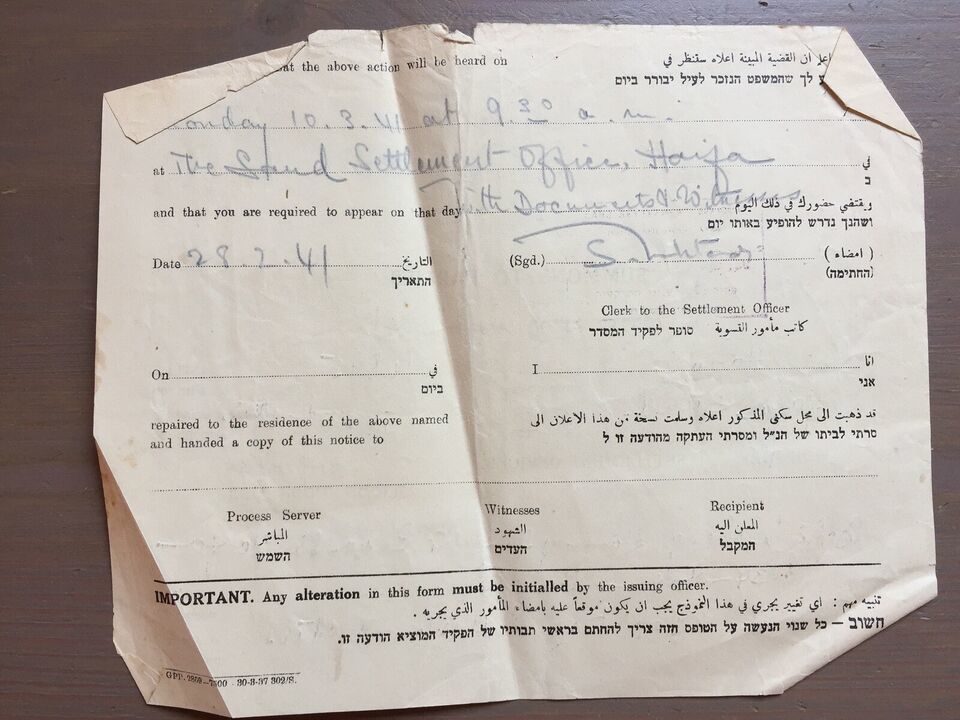 at the above action will be heard on
اعلم ان القضية المبينة اعلاه ستنظر في
לך שהמשפט הנזכר לעיל יבורר ביום
Monday 10.3.41 at 9.30 a.m.
at The Land Settlement Office, Haifa
في
ב
and that you are required to appear on that day with Documents & Witnesses
ويقتضي حضورك في ذلك اليوم
ושהנך נדרש להופיע באותו יום
Date 28.2.41 التاريخ
התאריך
(Sgd.) (امضاء)
(החתימה)
Clerk to the Settlement Officer
كاتب مأمور التسوية סופר לפקיד המסדר
On في
ביום
I انا
אני
repaired to the residence of the above named
and handed a copy of this notice to
قد ذهبت الى محل سكنى المذكور اعلاه وسلمت نسخة من هذا الاعلان الى
סרתי לביתו של הנ״ל ומסרתי העתקה מהודעה זו ל
Process Server
المباشر
השמש
Witnesses
الشهود
העדים
Recipient
المعلن اليه
המקבל
IMPORTANT. Any alteration in this form must be initialled by the issuing officer.
تنبيه مهم : اي تغيير يجري في هذا النموذج يجب ان يكون موقعاً عليه بامضاء المأمور الذي يجريه .
חשוב – כל שנוי הנעשה על הטופס הזה צריך להחתם בראשי תבותיו של הפקיד המוציא הודעה זו.
GPP. 2809—7500 - 30-3-37 302/S.